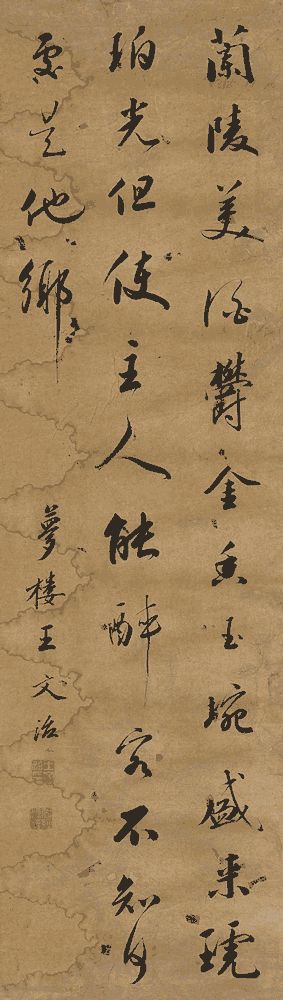 蘭陵美酒鬱金香玉椀盛来琥
珀光但使主人能醉客不知何
處是他鄉
夢樓王文治